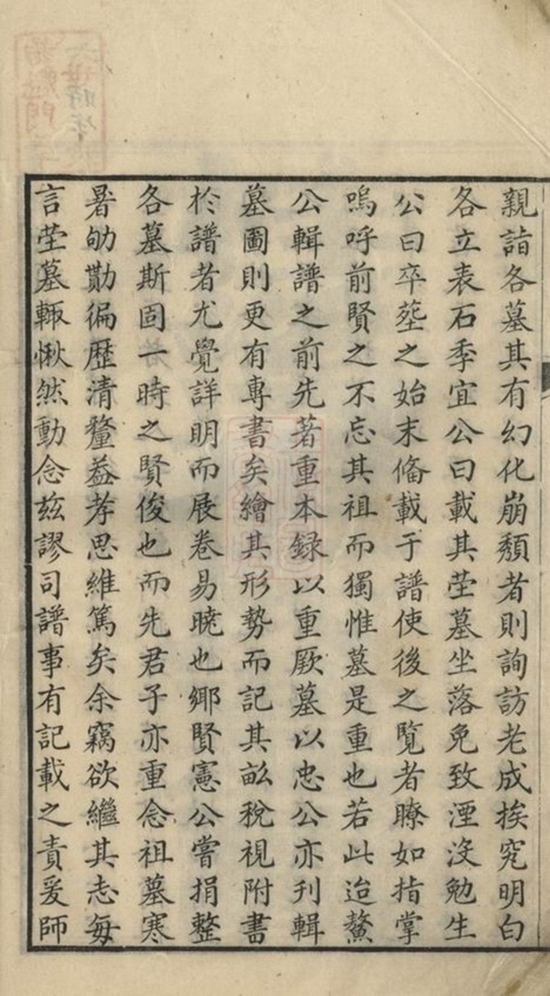 親詣各墓其有幻化崩頽者則詢訪老成挨究明白
各立表石季宜公曰載其茔墓坐落免致湮沒勉生
公曰卒塟之始末俻載于譜使後之覧者瞭如指掌
嗚呼前賢之不忘其祖而獨惟墓是重也若此迨鰲
公輯譜之前先著重本録以重厥墓以忠公亦刊輯
墓圖則更有專書矣繪其形勢而記其畝稅視附書
於譜者尤覺詳明而展卷易曉也鄉賢憲公嘗捐整
各墓斯固一時之賢俊也而先君子亦重念祖墓寒
暑劬勩徧歴清釐益孝思維篤矣余竊欲繼其志每
言茔墓輙愀然動念茲謬司譜事有記載之責爰師